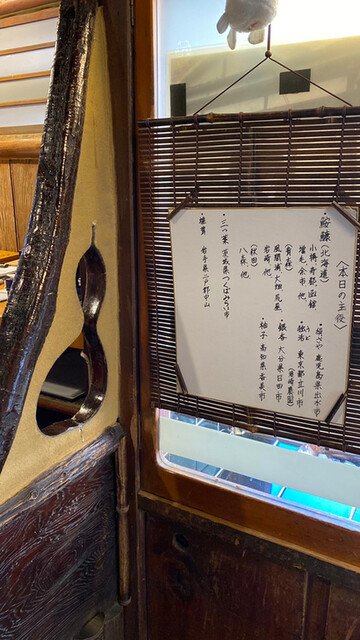 〈本日の主役〉
・鮟鱇(北海道)
小樽、寿都、函館
増毛、余市、他
(青森)
風間浦、大畑、尻屋、
岩崎、他
(秋田)
八森、他
・三つ葉 茨城県つくばみらい市
・蓮根
・絹さや 鹿児島県出水市
・独活 東京都立川市
・銀杏 大分県日田市
・柚子 高知県香美市